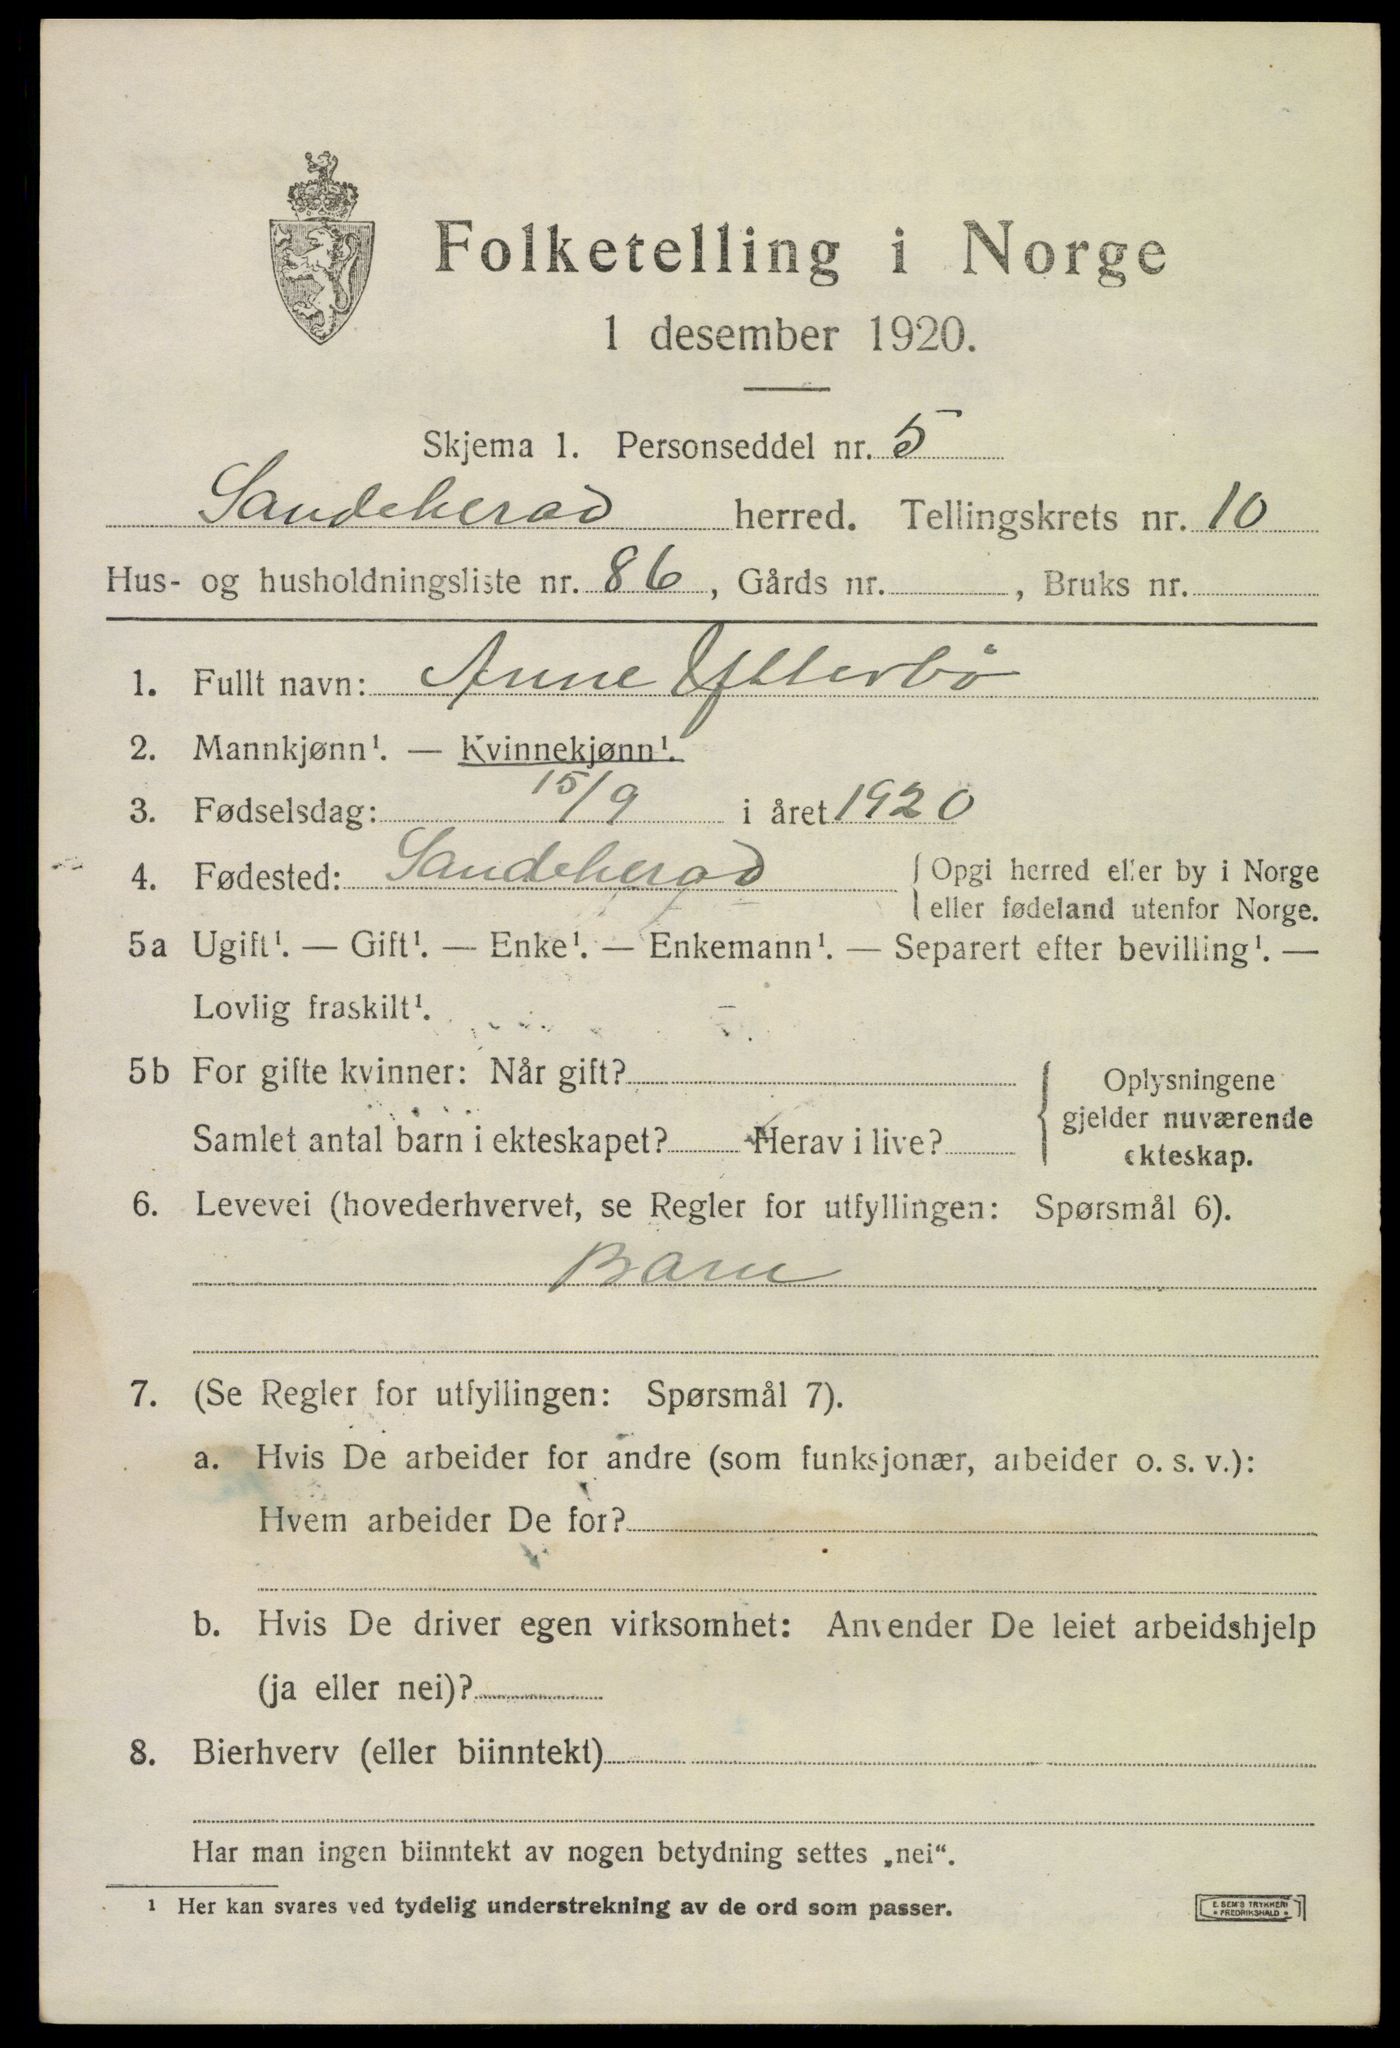 Folketelling i Norge
1 desember 1920.
Skjema 1. Personseddel nr. 5
Sandeherad herred. Tellingskrets nr. 10
Hus- og husholdningsliste nr. 86, Gårds nr. , Bruks nr.
1. Fullt navn: Anne
2. Mannkjønn¹. — Kvinnekjønn¹.
3. Fødselsdag: 15/9 i året 1920
4. Fødested: Sandeherad { Opgi herred eller by i Norge
eller fødeland utenfor Norge.
5a Ugift¹. — Gift¹. — Enke¹. — Enkemann¹. — Separert efter bevilling¹. —
Lovlig fraskilt¹.
5b For gifte kvinner: Når gift? { Oplysningene
gjelder nuværende
Samlet antal barn i ekteskapet? Herav i live?
ekteskap.
6. Levevei (hovederhvervet, se Regler for utfyllingen: Spørsmål 6).
Barn
7. (Se Regler for utfyllingen: Spørsmål 7).
a. Hvis De arbeider for andre (som funksjonær, arbeider o. s. v.):
Hvem arbeider De for?
b. Hvis De driver egen virksomhet: Anvender De leiet arbeidshjelp
(ja eller nei)?
8. Bierhverv (eller biinntekt)
Har man ingen biinntekt av nogen betydning settes „nei“.
¹ Her kan svares ved tydelig understrekning av de ord som passer.
E. SEM'S TRYKKERI
• FREDRIKSHALD •